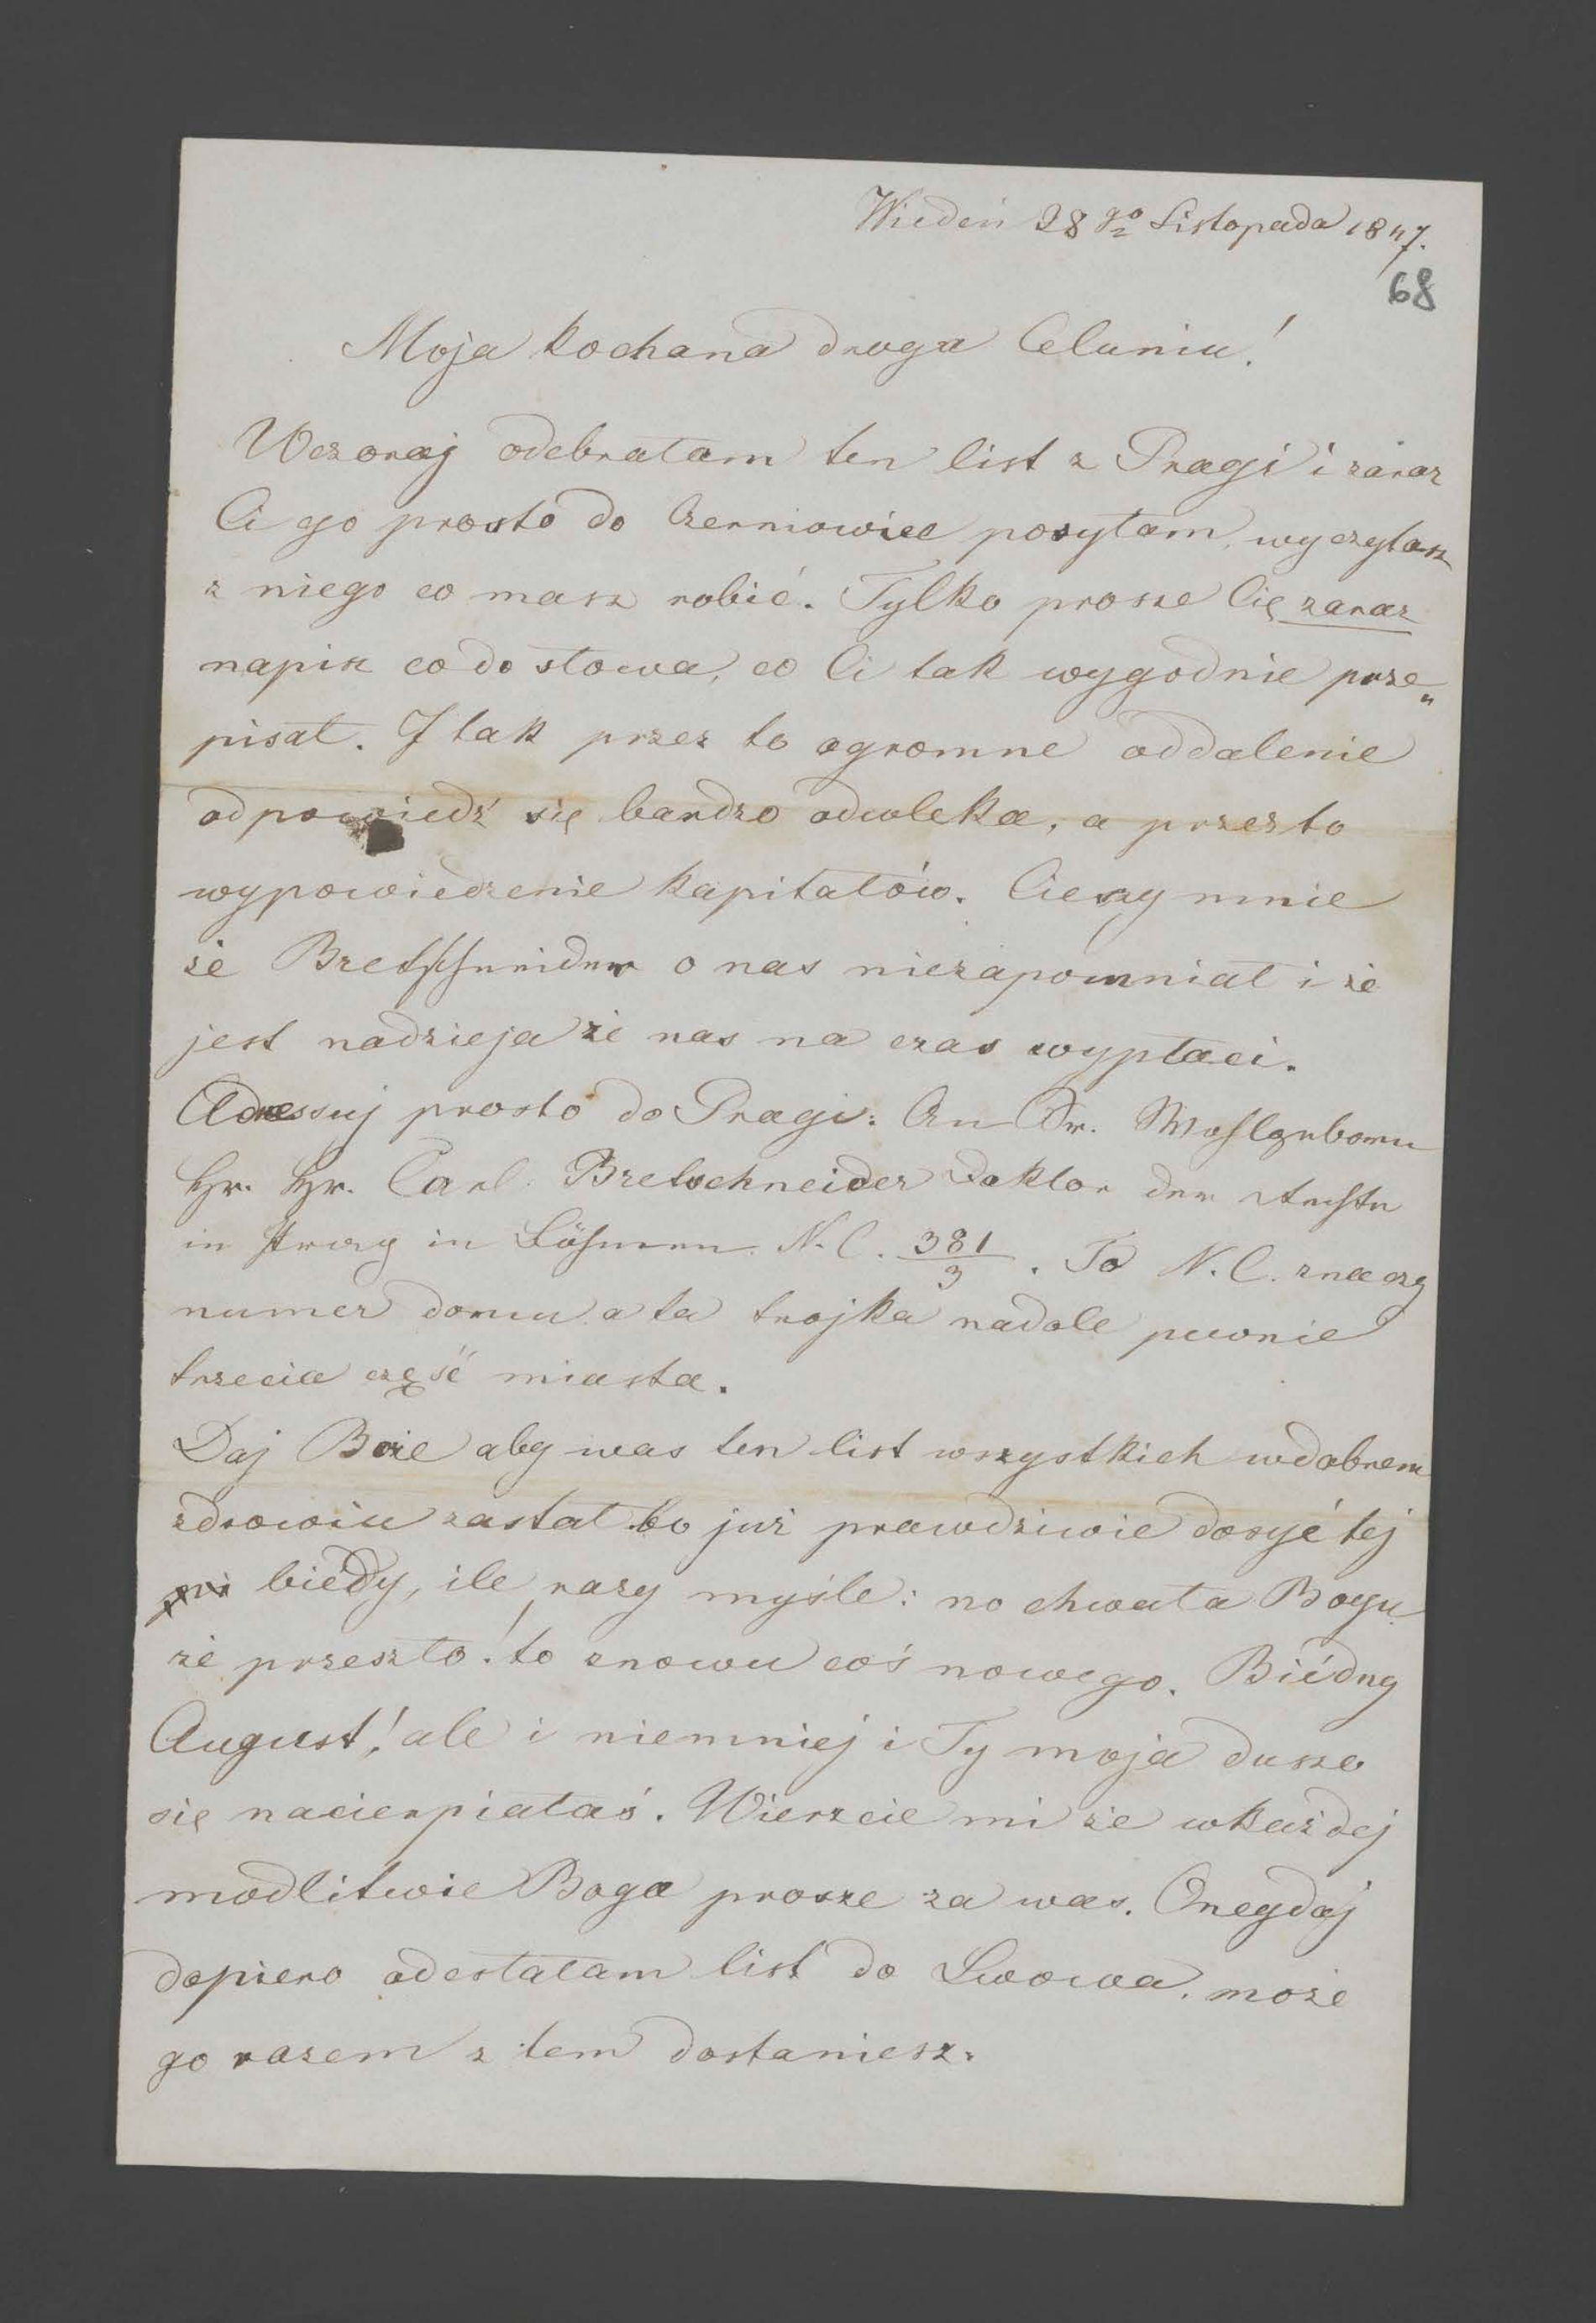 Wiedeń 28go Listopada 1847.
68
Moja kochana droga Celuniu!
Wczoraj odebrałam ten list z Pragi i zaraz
Ci go prosto do Czerniowiec posyłam, wyczytasz
z niego co masz robić. Tylko prosze Cię zaraz
napisz co do słowa, co Ci tak wygodnie prze„
pisał. I tak przez to ogromne oddalenie
odpowiedź się bardzo odwleka, a przez to
wypowiedzenie kapitałów. Cieszy mnie
że Bretschneider o nas niezapomniał i że
jest nadzieja że nas na czas wypłaci.
Adressuj prosto do Pragi: An Sr. Wohlgeborn
Hr. Hr. Carl Bretschneider Doktor der Rechte
in Prag in Böhmen. N.C. 381/3. To N.C. znaczy
numer domu a ta trojka nadole pewnie
trzecia część miasta.
Daj Boże aby was ten list wszystkich wdobrem
zdrowiu zastał bo już prawdziwie dosyć tej
biédy, ile razy myśle: no chwała Bogu
że przeszło! to znowu coś nowego. Biédny
August! ale i niemniej i Ty moja duszo
się nacierpiałaś. Wierzcie mi że wkażdej
modlitwie Boga prosze za was. Onegdaj
dopiero odesłałam list do Lwowa, może
go razem z tem dostaniesz.